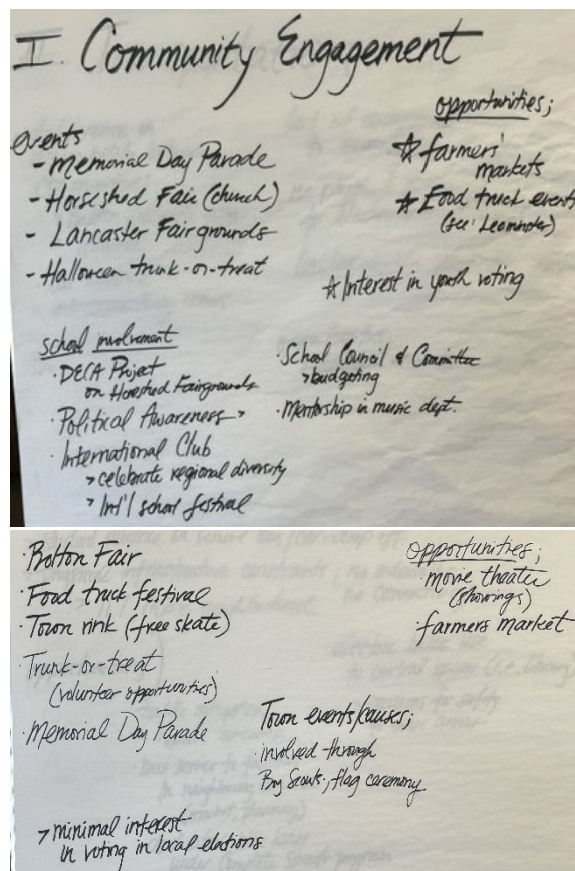 I. Community Engagement
events
- Memorial Day Parade
- Horseshed Fair (church)
- Lancaster Fairgrounds
- Halloween trunk-or-treat
opportunities;
☆ farmers'
markets
☆ Food truck events
(see: Leominster)
☆ Interest in youth voting
school involvement
· DECA Project
on Horeshed Fairgrounds
· Political Awareness >
· International Club
> celebrate regional diversity
> Int'l school festival
· School Council & Committee
> budgeting
· Mentorship in music dept.
· Bolton Fair
· Food truck festival
· Town rink (free skate)
· Trunk-or-treat
(volunteer opportunities)
· Memorial Day Parade
> minimal interest
in voting in local elections
opportunities;
· movie theater
(showings)
· farmers market
Town events/causes;
· involved through
Boy Scouts; flag ceremony